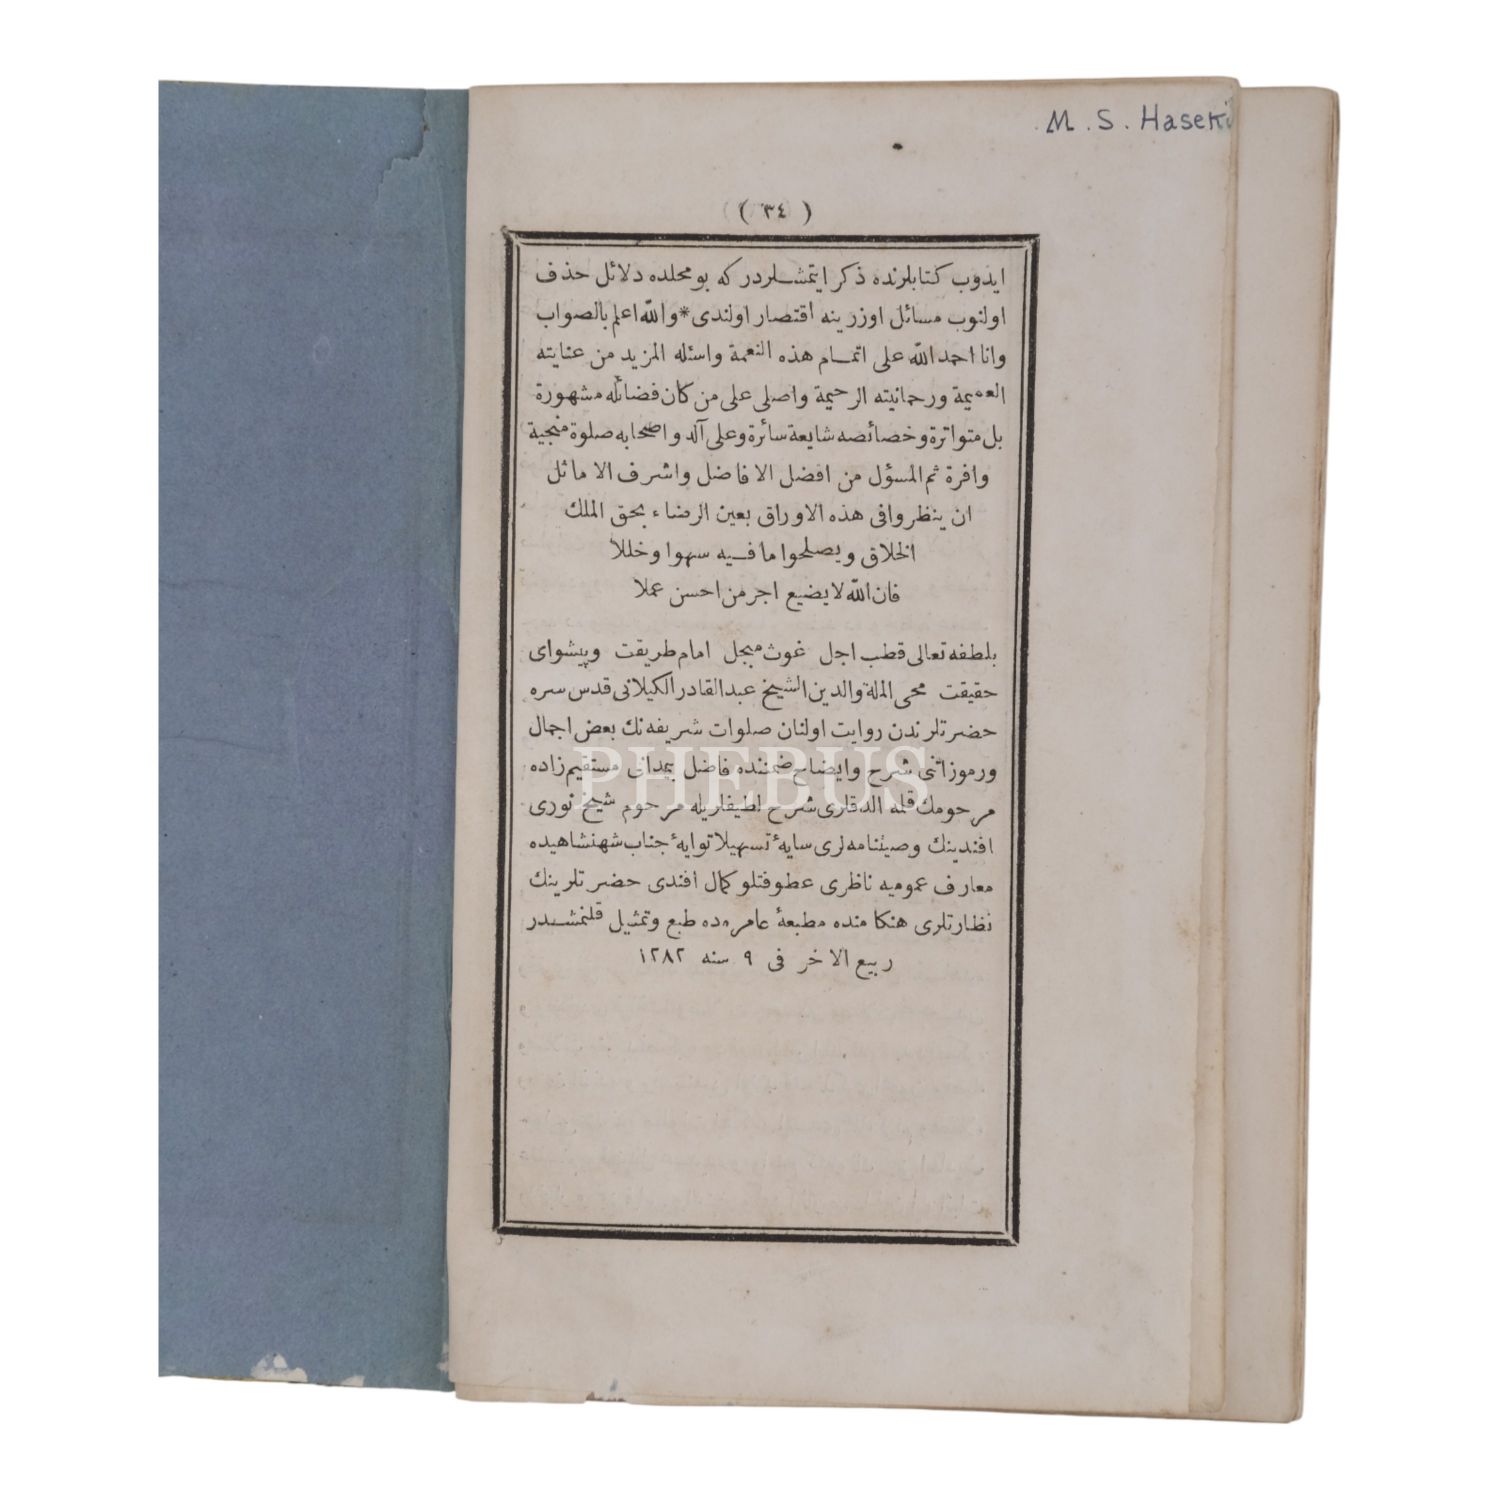 M. S. Haseki
( ٣٤ )
ایدوب کتابلرنده ذکر ایتمشلردر که بو محلده دلائل حذف
اولنوب مسائل اوزرینه اقتصار اولندی * والله اعلم بالصواب
وانا احمد الله علی اتمام هذه النعمة واسئله المزید من عنایته
العمیمة ورحمانیته الرحیمة واصلی علی من کان فضائله مشهورة
بل متواترة وخصائصه شایعة سائرة وعلی آله واصحابه صلوة منجیة
وافرة ثم المسؤل من افضل الافاضل واشرف الاماثل
ان ینظروا فی هذه الاوراق بعین الرضاء بحق الملک
الخلاق ویصلحوا ما فیه سهوا وخللا
فان الله لا یضیع اجر من احسن عملا
بلطفه تعالی قطب اجل غوث مبجل امام طریقت وپیشوای
حقیقت محی الملة والدین الشیخ عبد القادر الکیلانی قدس سره
حضرتلرندن روایت اولنان صلوات شریفه نك بعض اجمال
ورموزاتنی شرح وایضاح ضمننده فاضل بیمدانی مستقیم زاده
مرحومك قلمه الدقلری شرح لطیفلریله مرحوم شیخ نوری
افندینك وصیتنامه لری سایهٔ تسهیلاتوایهٔ جناب شهنشاهیده
معارف عمومیه ناظری عطوفتلو کمال افندی حضرتلرینك
نظارتلری هنکامنده مطبعهٔ عامره ده طبع وتمثیل قلنمشدر
ربیع الاخر فی ٩ سنه ١٢٨٢
PHEBUS